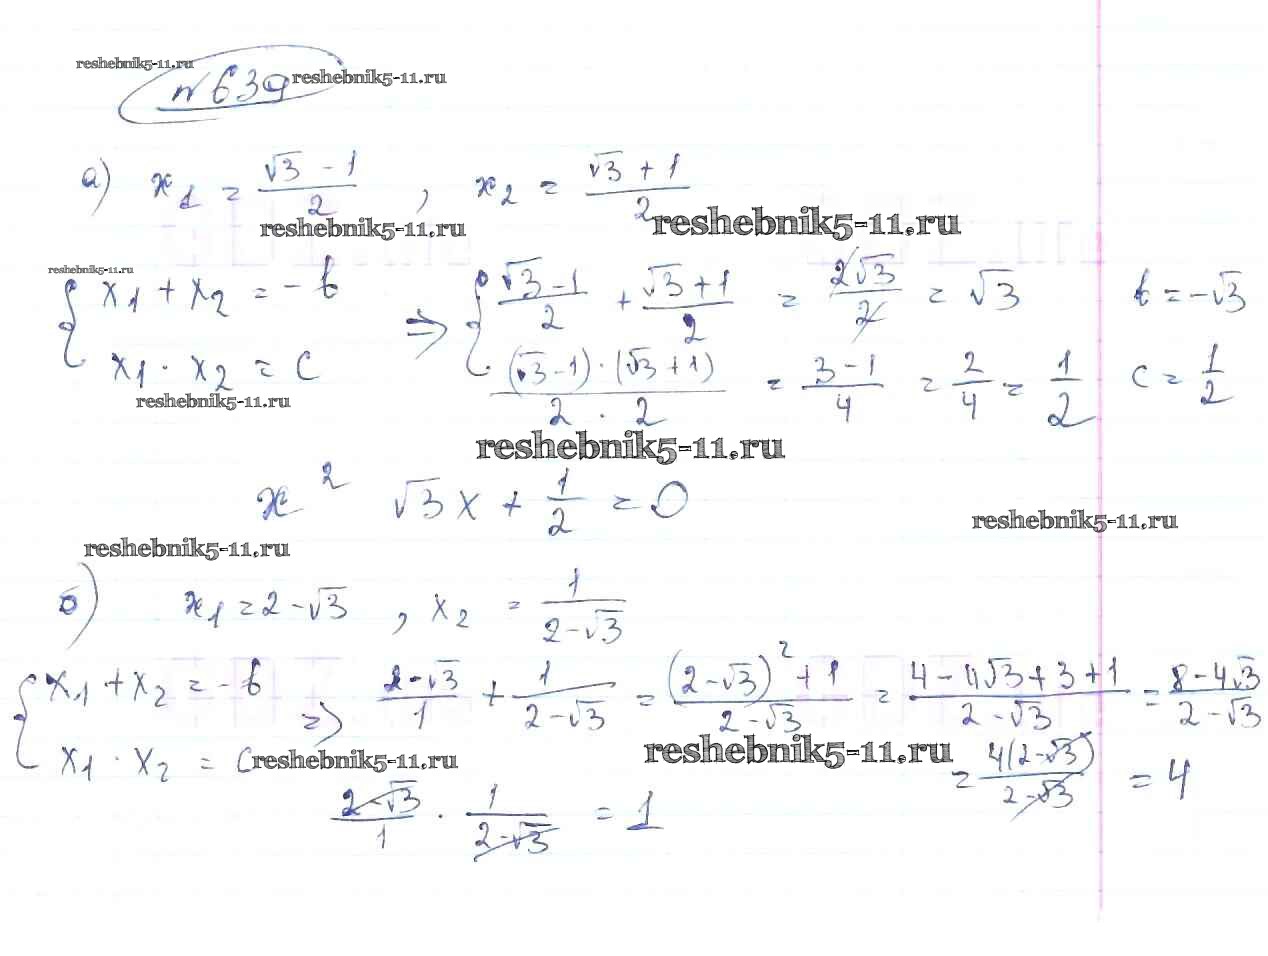 reshebnik5-11.ru
№639 reshebnik5-11.ru
а) x₁ = (√3 - 1)/2 , x₂ = (√3 + 1)/2
reshebnik5-11.ru reshebnik5-11.ru
reshebnik5-11.ru
{ x₁ + x₂ = -b ⇒ { (√3-1)/2 + (√3+1)/2 = 2√3/2 = √3 b = -√3
x₁ · x₂ = c (√3-1)·(√3+1)/(2 · 2) = (3-1)/4 = 2/4 = 1/2 c = 1/2
reshebnik5-11.ru
reshebnik5-11.ru
x² √3x + 1/2 = 0
reshebnik5-11.ru
reshebnik5-11.ru
б) x₁ = 2-√3 , x₂ = 1/(2-√3)
{ x₁ + x₂ = -b ⇒ (2-√3)/1 + 1/(2-√3) = ((2-√3)² + 1)/(2-√3) = (4 - 4√3 + 3 + 1)/(2-√3) = (8 - 4√3)/(2-√3)
x₁ · x₂ = c reshebnik5-11.ru reshebnik5-11.ru = 4(2-√3)/(2-√3) = 4
(2-√3)/1 · 1/(2-√3) = 1